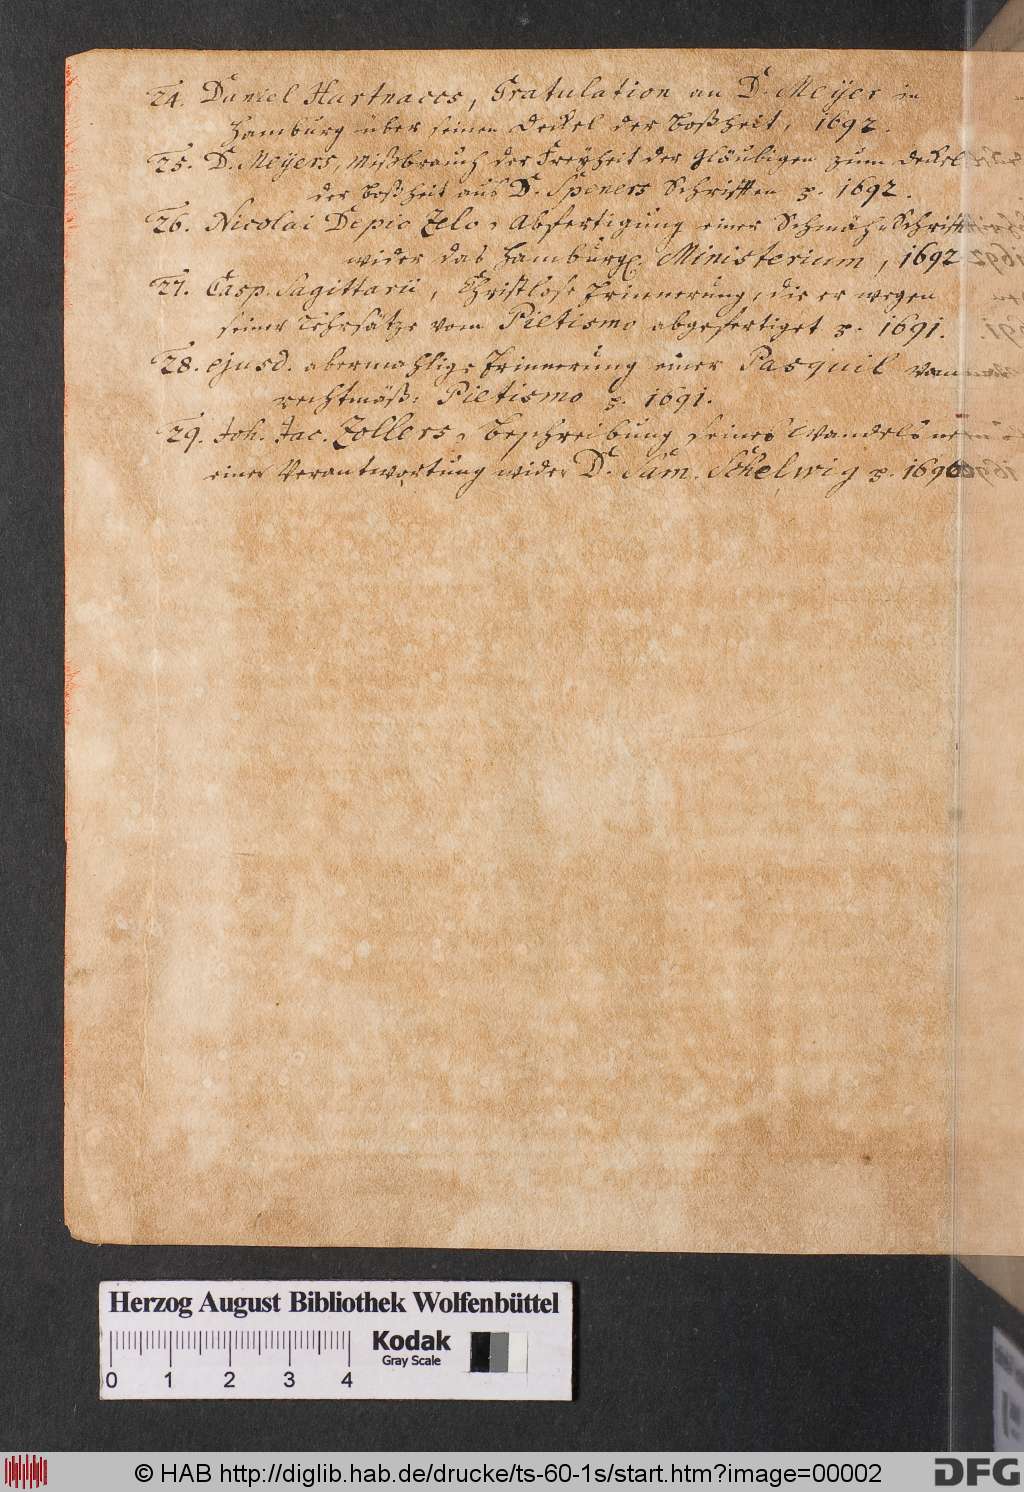 24. Daniel Hartnaccs, Gratulation an D. Meÿer in
Hamburg über seinen Deckel der Boßheit, 1692.
25. D. Meÿers, Mißbrauch der Freyheit der Gläubigen zum Deckel
der Boßheit aus D. Speners Schrifften p. 1692.
26. Nicolai De pio Zelo, Abfertigung einer Schmäh-Schrifft
wider das Hamburg. Ministerium, 1692
27. Casp. Sagittarii, Christlose Erinnerung, die er wegen
seiner Lehrsätze vom Pietismo abgefertiget p. 1691.
28. ejusd. abermahlige Erinnerung einer Pasquil vom
rechtmäß: Pietismo p. 1691.
29. Joh. Jac. Zollers, Beschreibung seines Wandels
einer Verantwortung wider D. Sam. Schelwig p. 1696
Herzog August Bibliothek Wolfenbüttel
Kodak
Gray Scale
0 1 2 3 4
© HAB http://diglib.hab.de/drucke/ts-60-1s/start.htm?image=00002
DFG